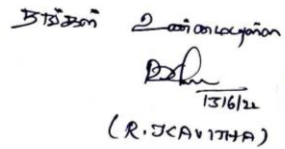 தங்கள் உண்மையுள்ள
13/6/22
(R. KAVITHA)